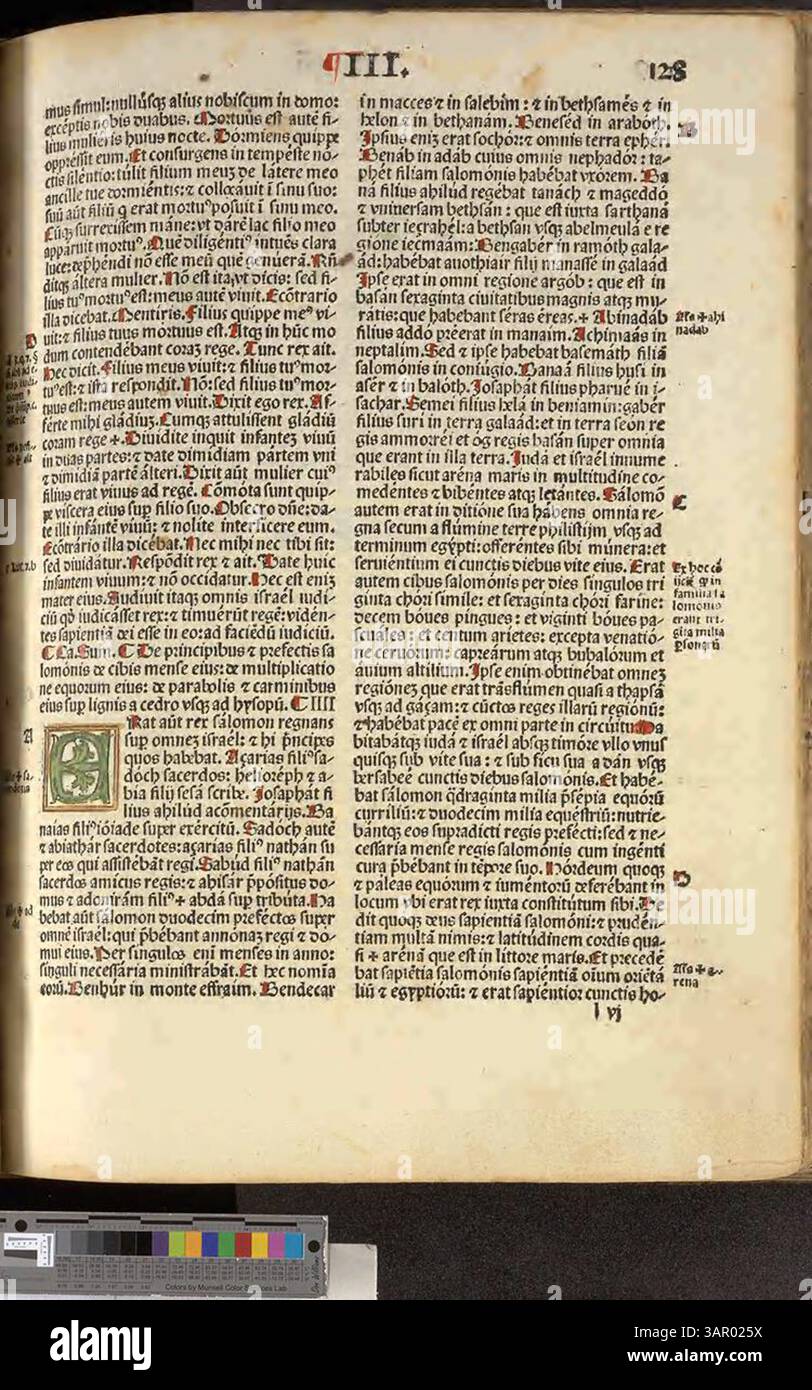 ¶III.
128
mus simul: nullúsqꝫ alius nobiscum in domo:
exceptis nobis duabus. Mortuus est autē fi-
lius mulieris huius nocte. Dórmiens quippe
oppréssit eum. Et consurgens in tempéste no-
ctis siléntio: túlit filium meuꝫ de látere meo
ancille tue dormiéntis: ⁊ collocáuit ī sinu suo:
suū aūt filiū q̄ erat mortuꝰ posuit ī sinu meo.
Cūqꝫ surrexíssem máne: vt dárē lac filio meo
appáruit mortuꝰ. Quē diligéntiꝰ intuēs clara
luce: dep̄hendi nō esse meū quē genúerā. Rñ
ditqꝫ áltera mulier. Nō est ita, vt dicis: sed fi-
lius tuꝰ mortuꝰ est: meus autē viuit. Ecōtrario
illa dicébat. Mentíris. Filius quippe meꝰ vi-
uit: ⁊ filius tuus mórtuus est. Atqꝫ in hūc mo
dum contendébant coraꝫ rege. Tunc rex ait.
Hec dicit. Filius meus viuit: ⁊ filius tuꝰ mor-
tuꝰ est: ⁊ ista respondit. Nō: sed filius tuꝰ mor-
tuus est: meus autem viuit. Dixit ergo rex. Af-
férte mihi gládiuꝫ. Cumqꝫ attulíssent gládiū
coram rege +. Diuidite inquit infanteꝫ viuū
in duas partes: ⁊ date dimídiam partem vni
⁊ dimidiā partē álteri. Dixit aūt mulier cuiꝰ
filius erat viuus ad regē. Cōmóta sunt quip-
pe víscera eius sup filio suo. Obsecro dn̄e: da-
te illi infántē viuū: ⁊ nolíte interfícere eum.
Ecōtrário illa dicébat. Nec mihi nec tibi sit:
sed diuidátur. Respōdit rex ⁊ ait. Date huic
infantem viuum: ⁊ nō occidatur. Hec est eniꝫ
mater eius. Audiuit itaqꝫ omnis israél iudí-
ciū qd̓ iudicásset rex: ⁊ timuérūt regē: vidén-
tes sapiéntiā dei esse in eo: ad faciédū iudiciū.
¶ Ca. Sum. ¶ De principibus ⁊ prefectis sa
lomónis de cibis mense eius: de multiplicatio
ne equorum eius: de parabolis ⁊ carminibus
eius sup lignis a cedro vsqꝫ ad hysopū. ¶ IIII
ERat aūt rex sálomon regnans
sup omneꝫ israél: ⁊ hi p̄ncipes
quos habebat. Açarias filiꝰ sa-
dóch sacerdos: helioréph ⁊ a-
bia filij sesá scribe. Josaphát fi
lius ahilúd acōmentárijs. Ba
naias filiꝰ ióiade super exércitū. Sadóch autē
⁊ abiathár sacerdotes: açarias filiꝰ nathán su
per eos qui assistébāt regi. Sabúd filiꝰ nathán
sacerdos amicus regis: ⁊ ahisár p̄pósitus do-
mus ⁊ adonirám filiꝰ + abdá sup tributa. Ha
bebat aūt sálomon duodecim prefectos super
omnē israél: qui p̄bébant annónaꝫ regi ⁊ do-
mui eius. Per singulos enī menses in anno:
singuli necessária ministrábāt. Et hec nomīa
eorū. Benhúr in monte effraim. Bendecar
in macces ⁊ in salebím: ⁊ in bethsamés ⁊ in
helon ⁊ in bethanám. Beneséd in arabóth.
Ipsius eniꝫ erat sochór: ⁊ omnis terra ephér.
Benáb inadáb cuius omnis nephadór: ta-
phét filiam salomónis habébat vxórem. Ba
ná filius ahilúd regébat tanách ⁊ mageddó
⁊ vniuersam bethsán: que est iuxta sarthaná
subter ieçrahél: a bethsan vsqꝫ abelmeulá e re
gióne iecmaám: Bengabér in ramóth gala-
ád: habébat auothiair filij manassé in galaád
Ipse erat in omni regione argób: que est in
basán sexaginta ciuitátibus magnis atqꝫ mu-
rátis: que habebant séras éreas. + Abinadáb
filius addó p̄éerat in manaim. Achimaás in
neptalim. Sed ⁊ ipse habebat basemáth filiā
salomónis in coniugio. Banaá filius husi in
asér ⁊ in balóth. Josaphát filius pharué in i-
sachar. Semei filius helá in beniamin: gabér
filius suri in terra galaád: et in terra seón re
gis ammorréi et óg regis basán super omnia
que erant in illa terra. Judá et israél innume
rabiles sicut aréna maris in multitudine co-
medéntes ⁊ bibéntes atqꝫ letántes. Sálomō
autem erat in ditióne sua hábens omnia re-
gna secum a flúmine terre philistijm vsqꝫ ad
terminum egýpti: offeréntes sibi múnera: et
seruiéntium ei cunctis diebus vite eius. Erat
autem cibus salomónis per dies síngulos tri
ginta chóri símile: et sexaginta chóri farine:
decem bóues pingues: et viginti bóues pa-
scuáles: et centum arietes: excepta venatió-
ne ceruórum: capreárum atqꝫ bubalórum et
auium altilium. Ipse enim obtinébat omneꝫ
regióneꝫ que erat trāsflúmen quasi a thapsá
vsqꝫ ad gáçam: ⁊ cúctos reges illarū regiónū:
⁊ habébat pacē ex omni parte in circúitu. Ha
bitabátqꝫ iudá ⁊ israél absqꝫ timóre vllo vnus
quisqꝫ sub vite sua: ⁊ sub ficu sua a dán vsqꝫ
bersabeé cunctis diebus salomónis. Et habé-
bat sálomon qdraginta milia p̄sépia equórū
currílíū: ⁊ duodecim milia equéstriū: nutrie-
bántqꝫ eos supradicti regis prefécti: sed ⁊ ne-
cessária mense regis salomónis cum ingénti
cura p̄bébant in tépore suo. Hórdeum quoqꝫ
⁊ paleas equórum ⁊ iumentórū deferébant in
locum vbi erat rex iuxta constitútum sibi. De
dit quoqꝫ deus sapiéntiā salomóni: ⁊ prudén-
tiam multā nimis: ⁊ latitúdinem cordis qua-
si + arénā que est in líttore maris. Et precedé
bat sapiétia salomónis sapiéntiā oīum oriétá
liū ⁊ egyptiórū: ⁊ erat sapiéntior cunctis ho-
l vj
B
Als + ahi
nadab
C
D
Als + a-
rena
A
alamy
Image ID: 3AR025X
www.alamy.com